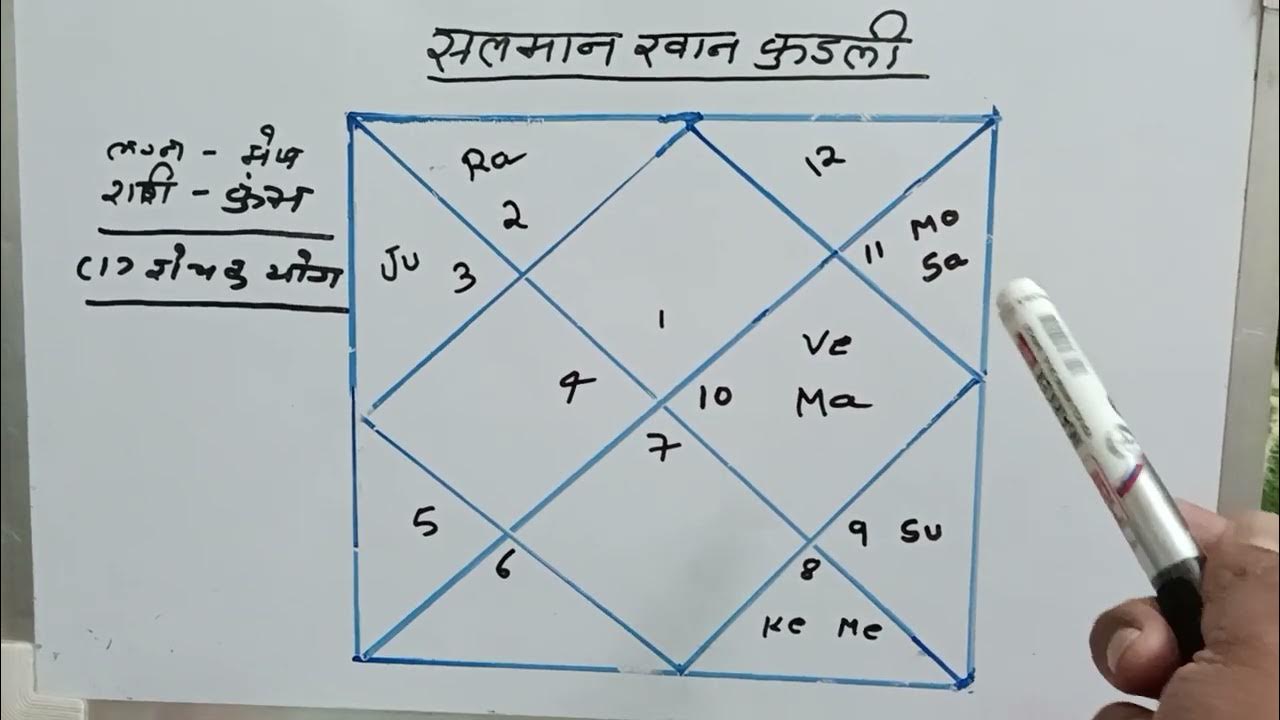 सलमान खान कुडली
लग्न - मेष
राशी - कुंभ
(1) रोचक योग
Ra
2
12
Ju
3
11
Mo
Sa
1
4
10
Ve
Ma
7
5
6
9 Su
8
Ke Me